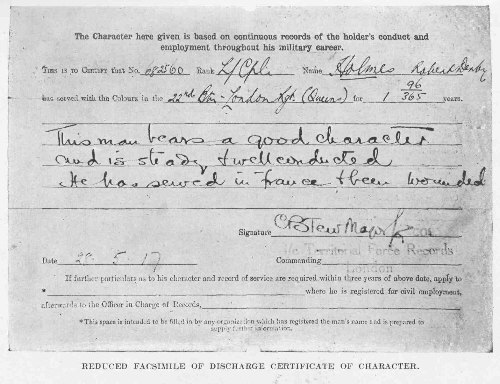 The Character here given is based on continuous records of the holder's conduct and
employment throughout his military career.
THIS IS TO CERTIFY that No. 682560 Rank L/Cpl. Name Holmes Robert Derby
has served with the Colours in the 22nd Bn. London Rgt. (Queens) for 1 96/365 years.
This man bears a good character
and is steady & well conducted
He has served in France & been wounded
Signature Major for
Territorial Force Records
Commanding London
Date 26.5.17
If further particulars as to his character and record of service are required within three years of above date, apply to
* where he is registered for civil employment,
afterwards to the Officer in Charge of Records,
*This space is intended to be filled in by any organization which has registered the man's name and is prepared to
supply further information.
REDUCED FACSIMILE OF DISCHARGE CERTIFICATE OF CHARACTER.